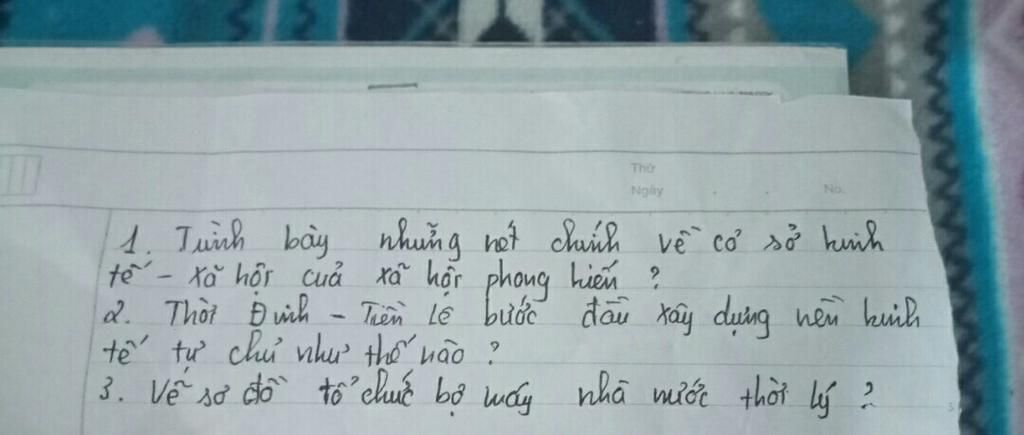 Thứ
Ngày
No.
1. Trình bày những nét chính về cơ sở kinh
tế - xã hội của xã hội phong kiến ?
2. Thời Đinh - Tiền Lê bước đầu xây dựng nền kinh
tế tự chủ như thế nào ?
3. Vẽ sơ đồ tổ chức bộ máy nhà nước thời lý ?